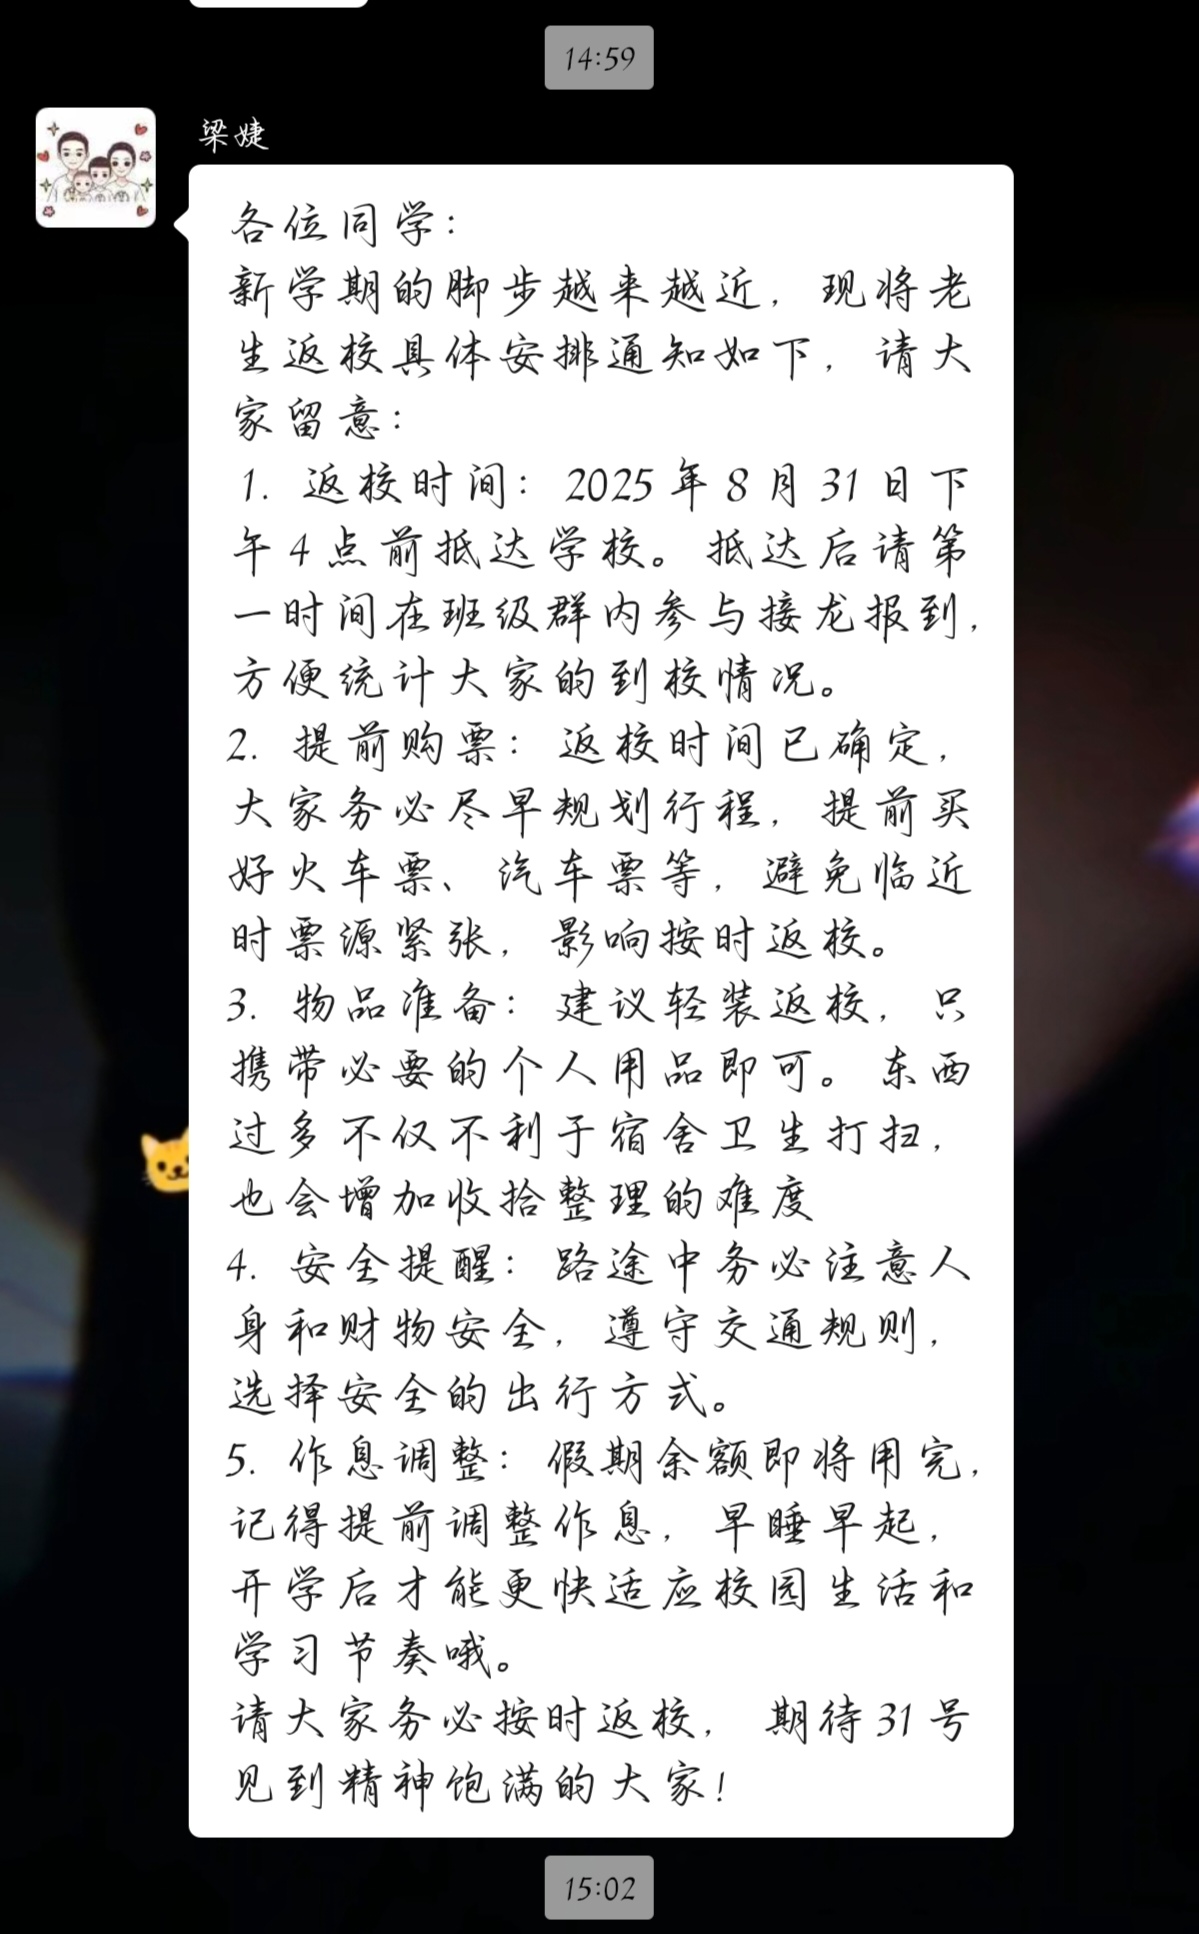 14:59
梁婕
各位同学：
新学期的脚步越来越近，现将老
生返校具体安排通知如下，请大
家留意：
1. 返校时间：2025年8月31日下
午4点前抵达学校。抵达后请第
一时间在班级群内参与接龙报到，
方便统计大家的到校情况。
2. 提前购票：返校时间已确定，
大家务必尽早规划行程，提前买
好火车票、汽车票等，避免临近
时票源紧张，影响按时返校。
3. 物品准备：建议轻装返校，只
携带必要的个人用品即可。东西
过多不仅不利于宿舍卫生打扫，
也会增加收拾整理的难度
4. 安全提醒：路途中务必注意人
身和财物安全，遵守交通规则，
选择安全的出行方式。
5. 作息调整：假期余额即将用完，
记得提前调整作息，早睡早起，
开学后才能更快适应校园生活和
学习节奏哦。
请大家务必按时返校， 期待31号
见到精神饱满的大家！
15:02